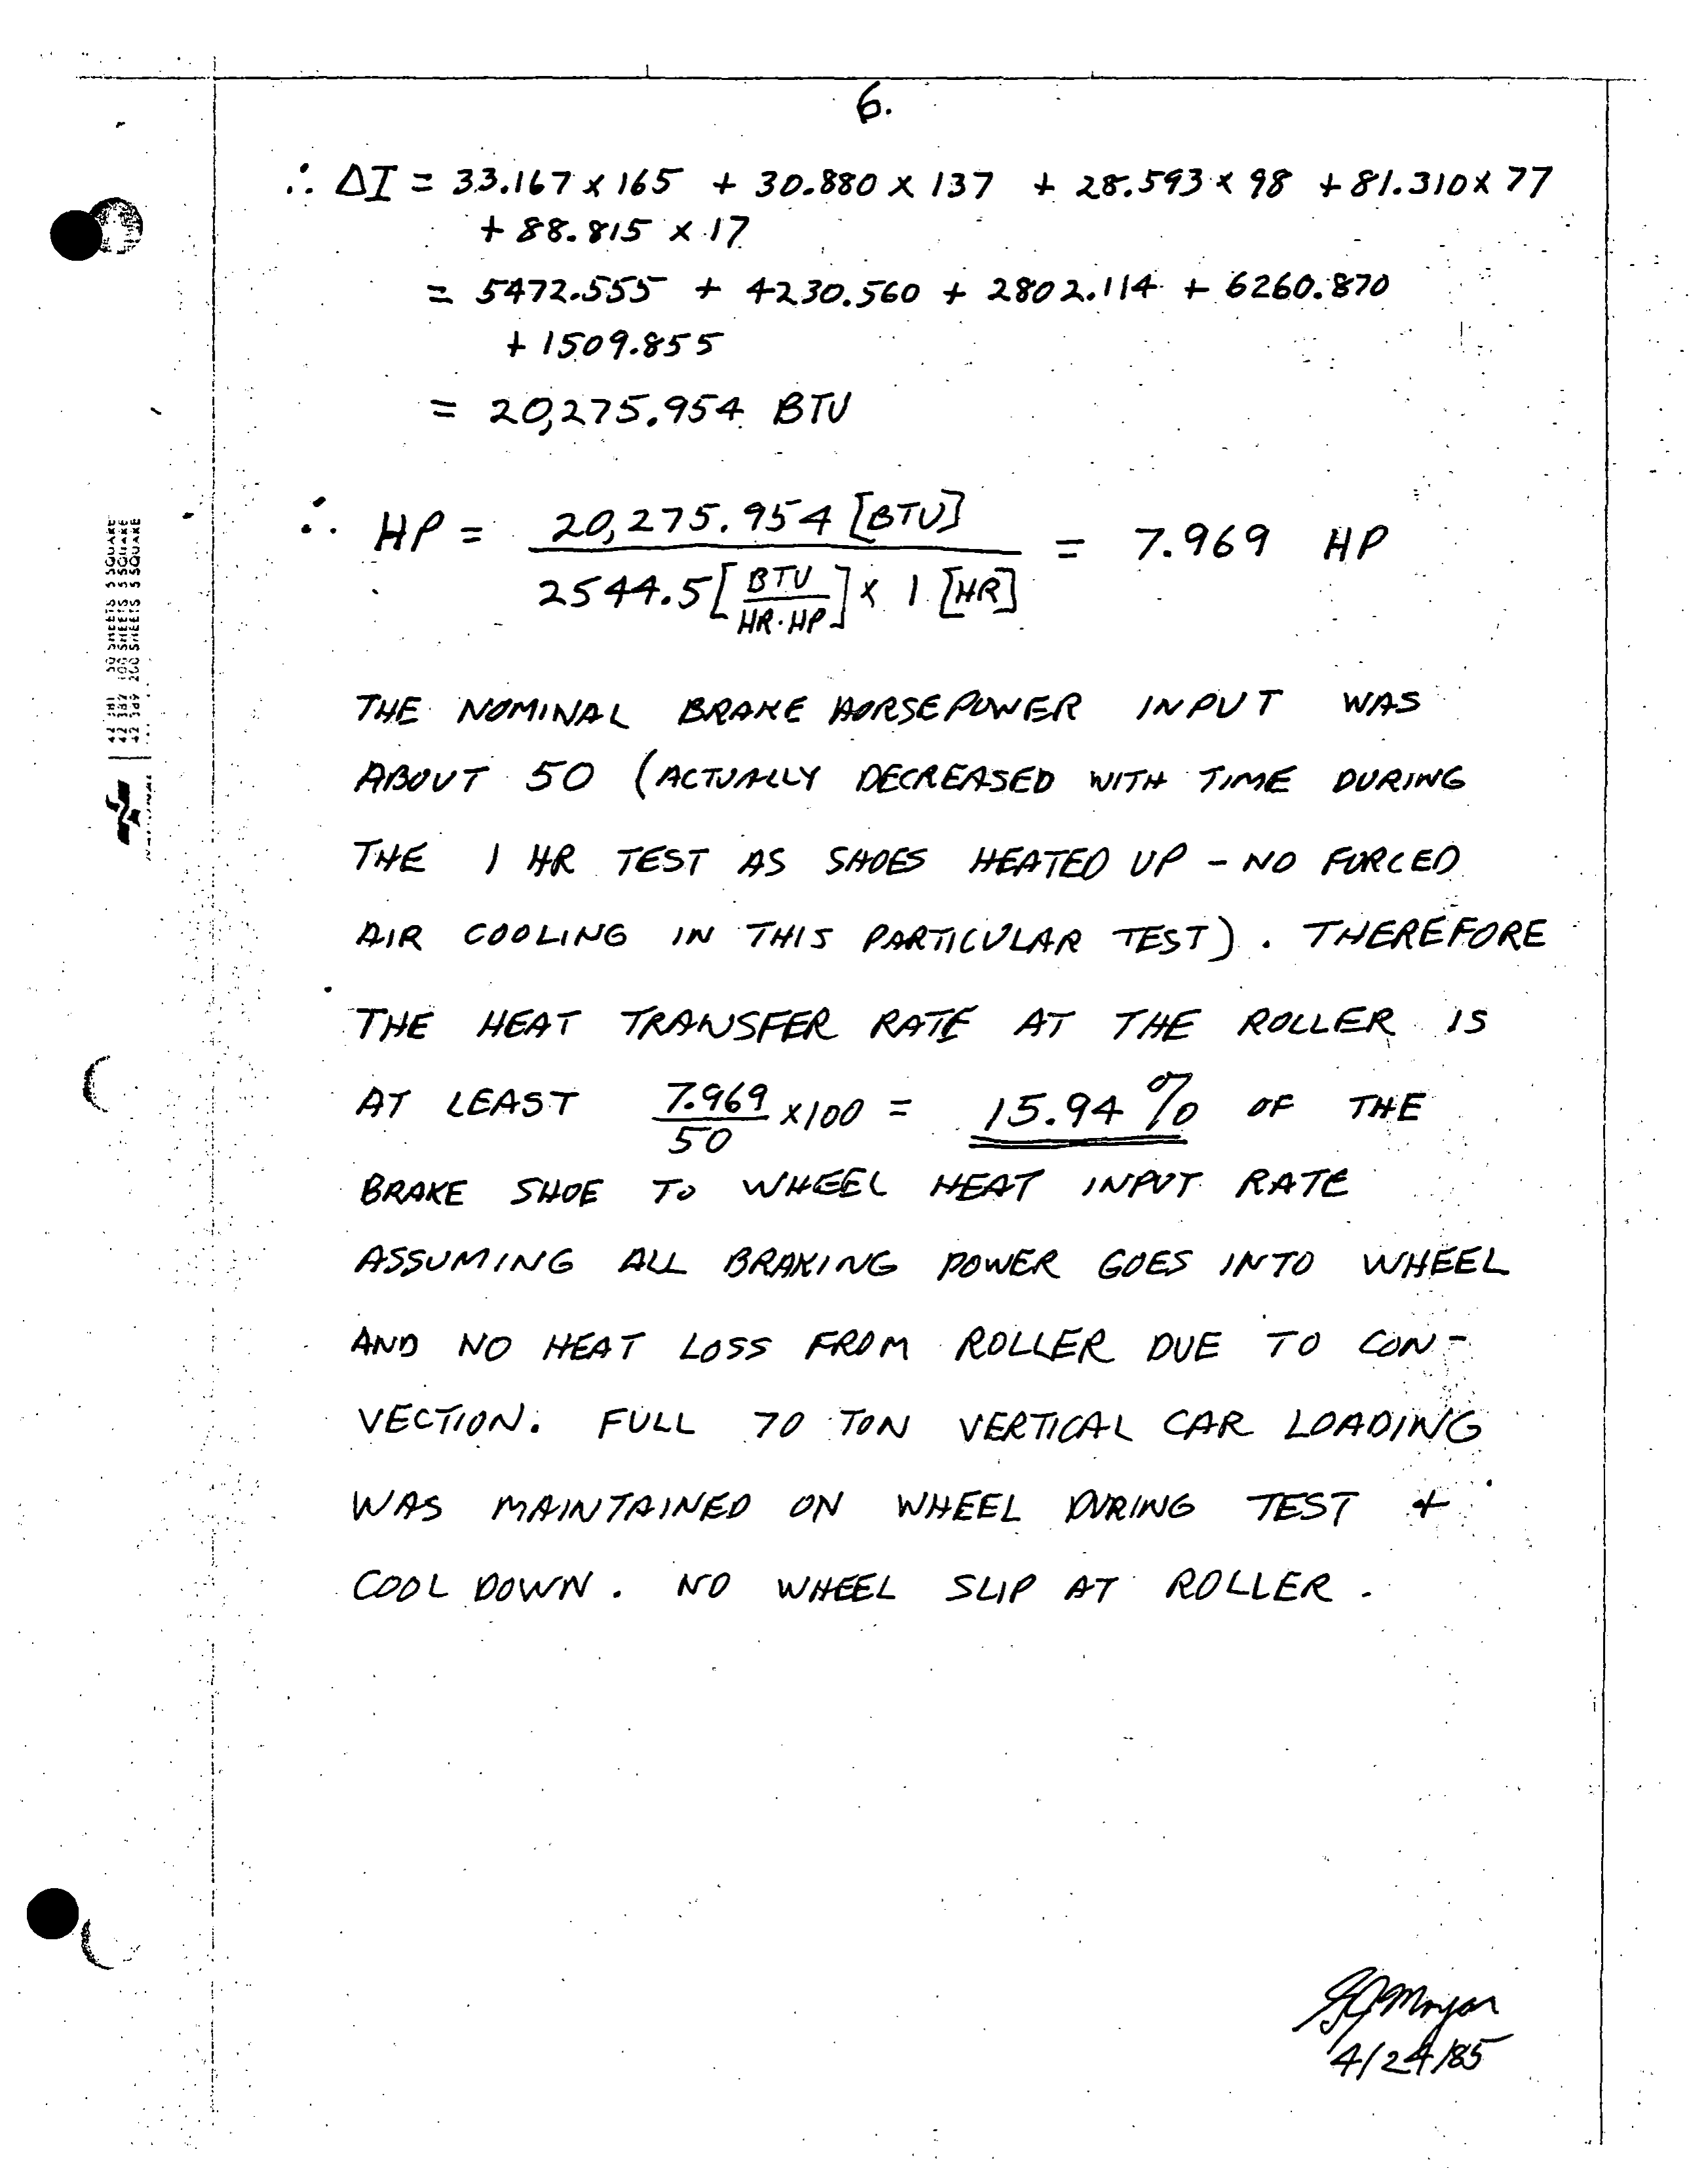 6.
∴ ΔI = 33.167 x 165 + 30.880 x 137 + 28.593 x 98 + 81.310 x 77
+ 88.815 x 17
= 5472.555 + 4230.560 + 2802.114 + 6260.870
+ 1509.855
= 20,275.954 BTU
∴ HP = 20,275.954 [BTU] / 2544.5 [BTU / HR·HP] x 1 [HR] = 7.969 HP
THE NOMINAL BRAKE HORSEPOWER INPUT WAS
ABOUT 50 (ACTUALLY DECREASED WITH TIME DURING
THE 1 HR TEST AS SHOES HEATED UP - NO FORCED
AIR COOLING IN THIS PARTICULAR TEST). THEREFORE
THE HEAT TRANSFER RATE AT THE ROLLER IS
AT LEAST 7.969 / 50 x100 = 15.94 % OF THE
BRAKE SHOE TO WHEEL HEAT INPUT RATE
ASSUMING ALL BRAKING POWER GOES INTO WHEEL
AND NO HEAT LOSS FROM ROLLER DUE TO CON-
VECTION. FULL 70 TON VERTICAL CAR LOADING
WAS MAINTAINED ON WHEEL DURING TEST +
COOL DOWN. NO WHEEL SLIP AT ROLLER.
4/24/85
42 381 50 SHEETS 5 SQUARE
42 382 100 SHEETS 5 SQUARE
42 389 200 SHEETS 5 SQUARE
NATIONAL